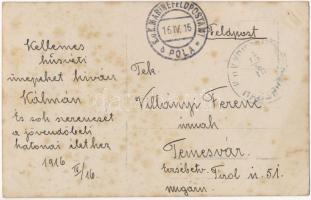 Kellemes
húsvéti
ünnepeket kíván
Kálmán
és sok szerencsét
a jövendőbéli
katonai élethez
1916 IV/16.
K.u.K. MARINEFELDPOSTAMT
16.IV.16
POLA
Feldpost
Tek.
Villányi Ferenc
úrnak
Temesvár.
Erzsébetv. Tirol u. 51.